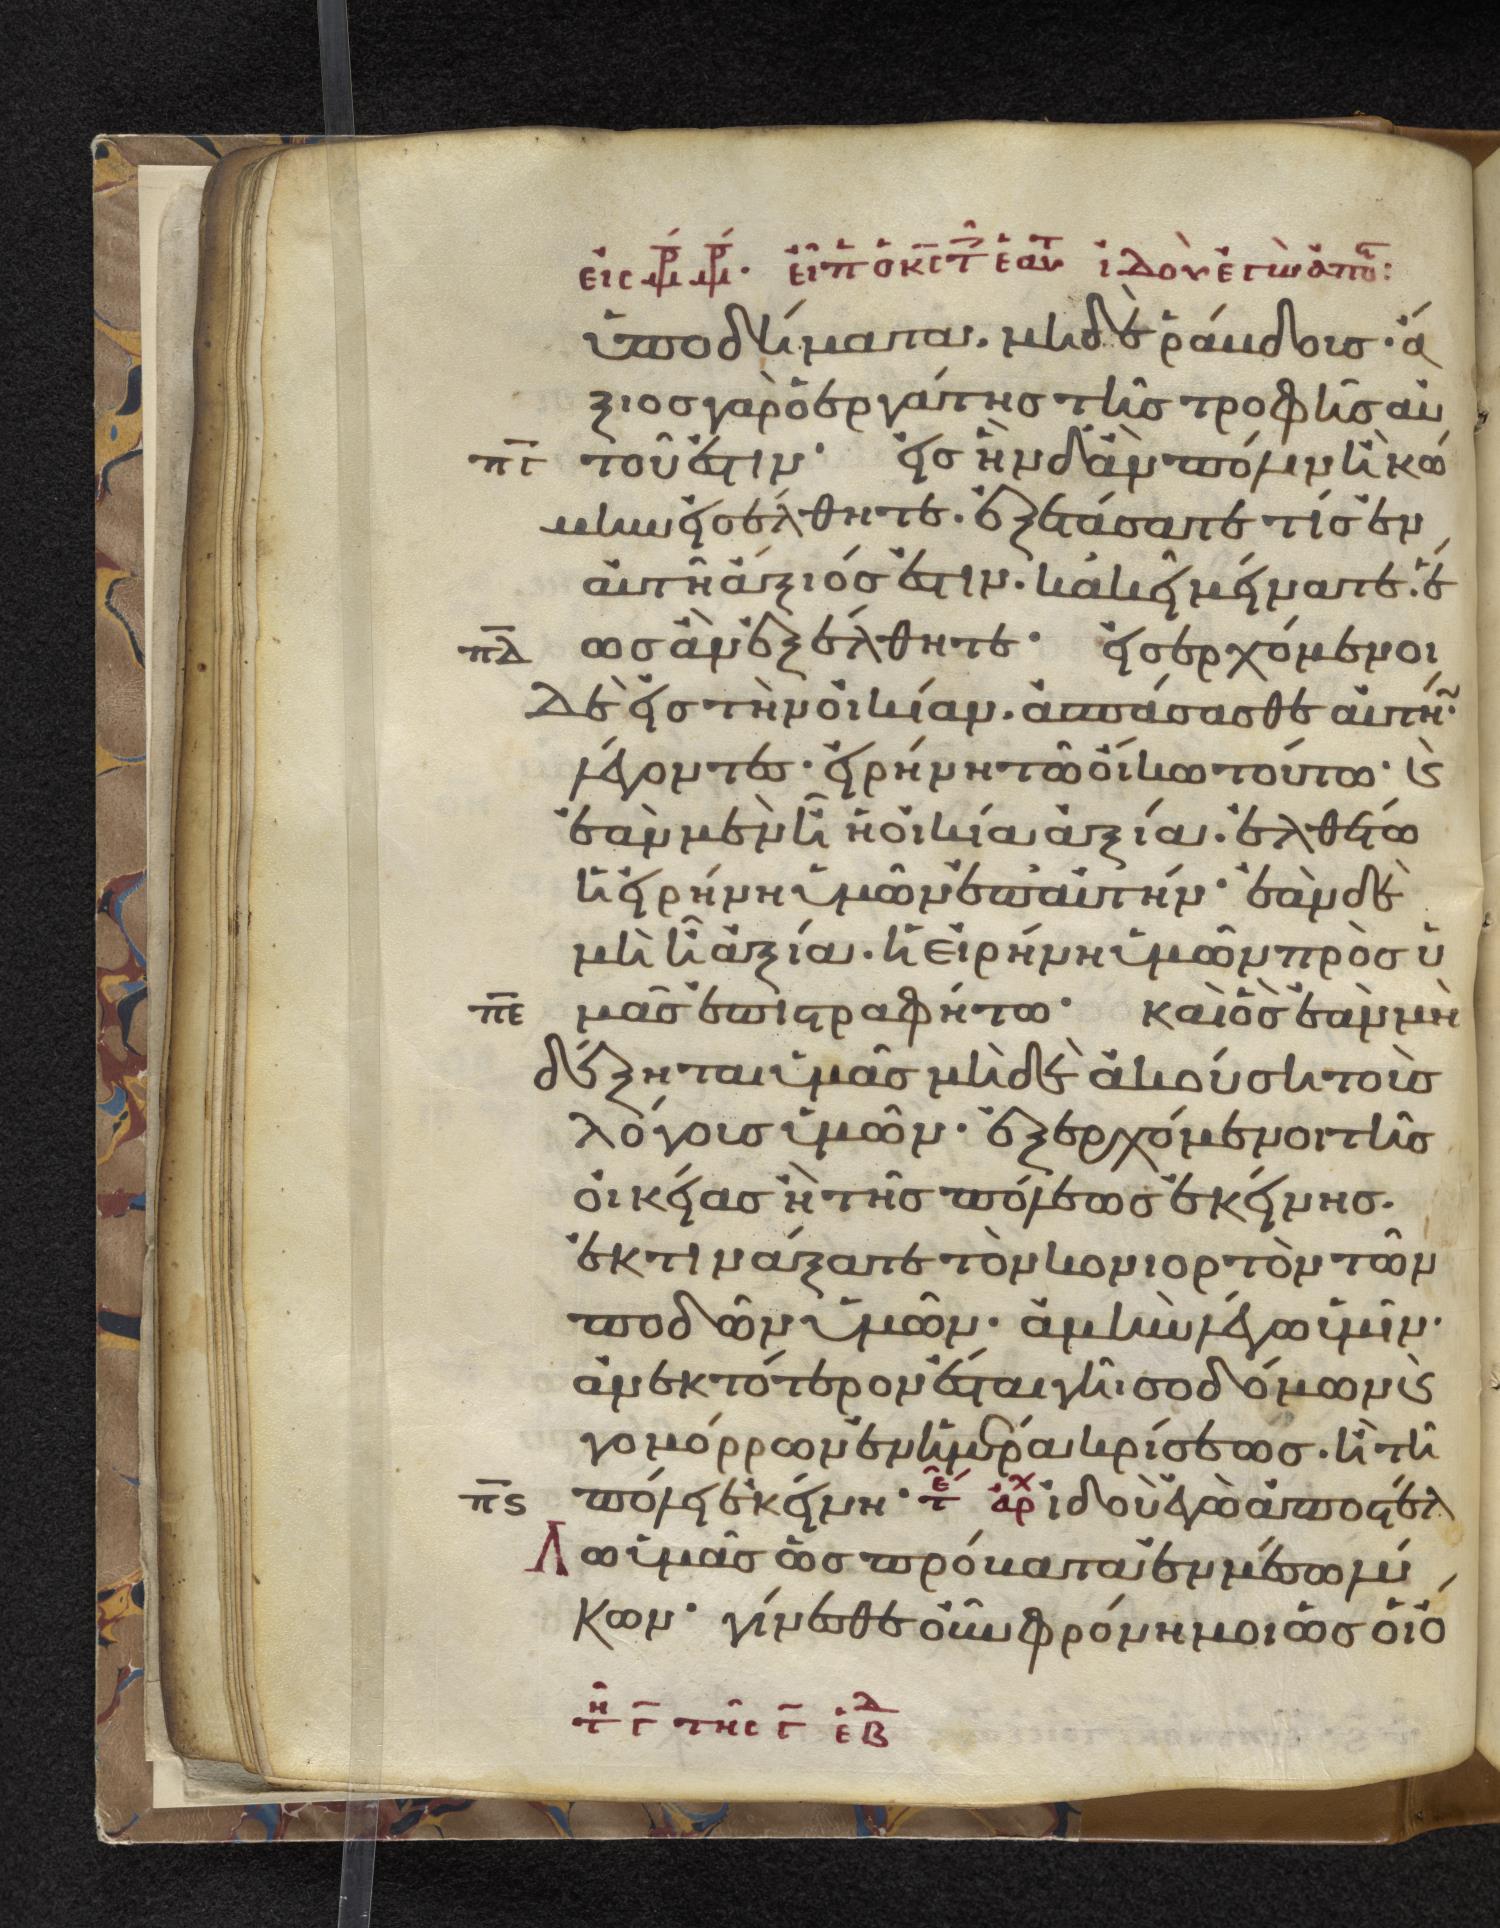 ὑποδήματα. μηδὲ ῥάυδοις. ἄ
ξιος γὰρ ὁ ἐργάτης τῆς τροφῆς αὐ
πγ τοῦ ἐστιν. εἰς ἣν δ' ἂν πόλιν ἢ κώ
μην εἰσέλθητε. ἐξετάσατε τίς ἐν
αὐτῇ ἄξιός ἐστιν. κἀκεῖ μείνατε. ἕ
πδ ως ἂν ἐξέλθητε. εἰσερχόμενοι
δὲ εἰς τὴν οἰκίαν. ἀσπάσασθε αὐτήν.
λέγοντες. εἰρήνη τῶ οἴκω τούτω. καὶ
ἐὰν μὲν ἦ ἡ οἰκία ἀξία. ἐλθέτω
ἡ εἰρήνη ὑμῶν ἐπ' αὐτήν. ἐὰν δὲ
μὴ ἦ ἀξία. ἡ εἰρήνη ὑμῶν πρὸς ὑ
πε μᾶς ἐπιστραφήτω. καὶ ὃς ἐὰν μὴ
δέξηται ὑμᾶς μηδὲ ἀκούση τοὺς
λόγους ὑμῶν. ἐξερχόμενοι τῆς
οἰκείας ἢ τῆς πόλεως ἐκείνης.
ἐκτινάξατε τὸν κονιορτὸν τῶν
ποδῶν ὑμῶν. ἀμὴν λέγω ὑμῖν.
ἀνεκτότερον ἔσται γῆ σοδόμων καὶ
γομόρρων ἐν ἡμέρα κρίσεως. ἢ τῆ
πϛ πόλει ἐκείνη. τε ἀρχ ἰδοὺ ἐγὼ ἀποστέλ
Λω ὑμᾶς ὡς πρόβατα ἐν μέσω λύ
κων. γίνεσθε οὖν φρόνημοι ὡς οἱ ὄ